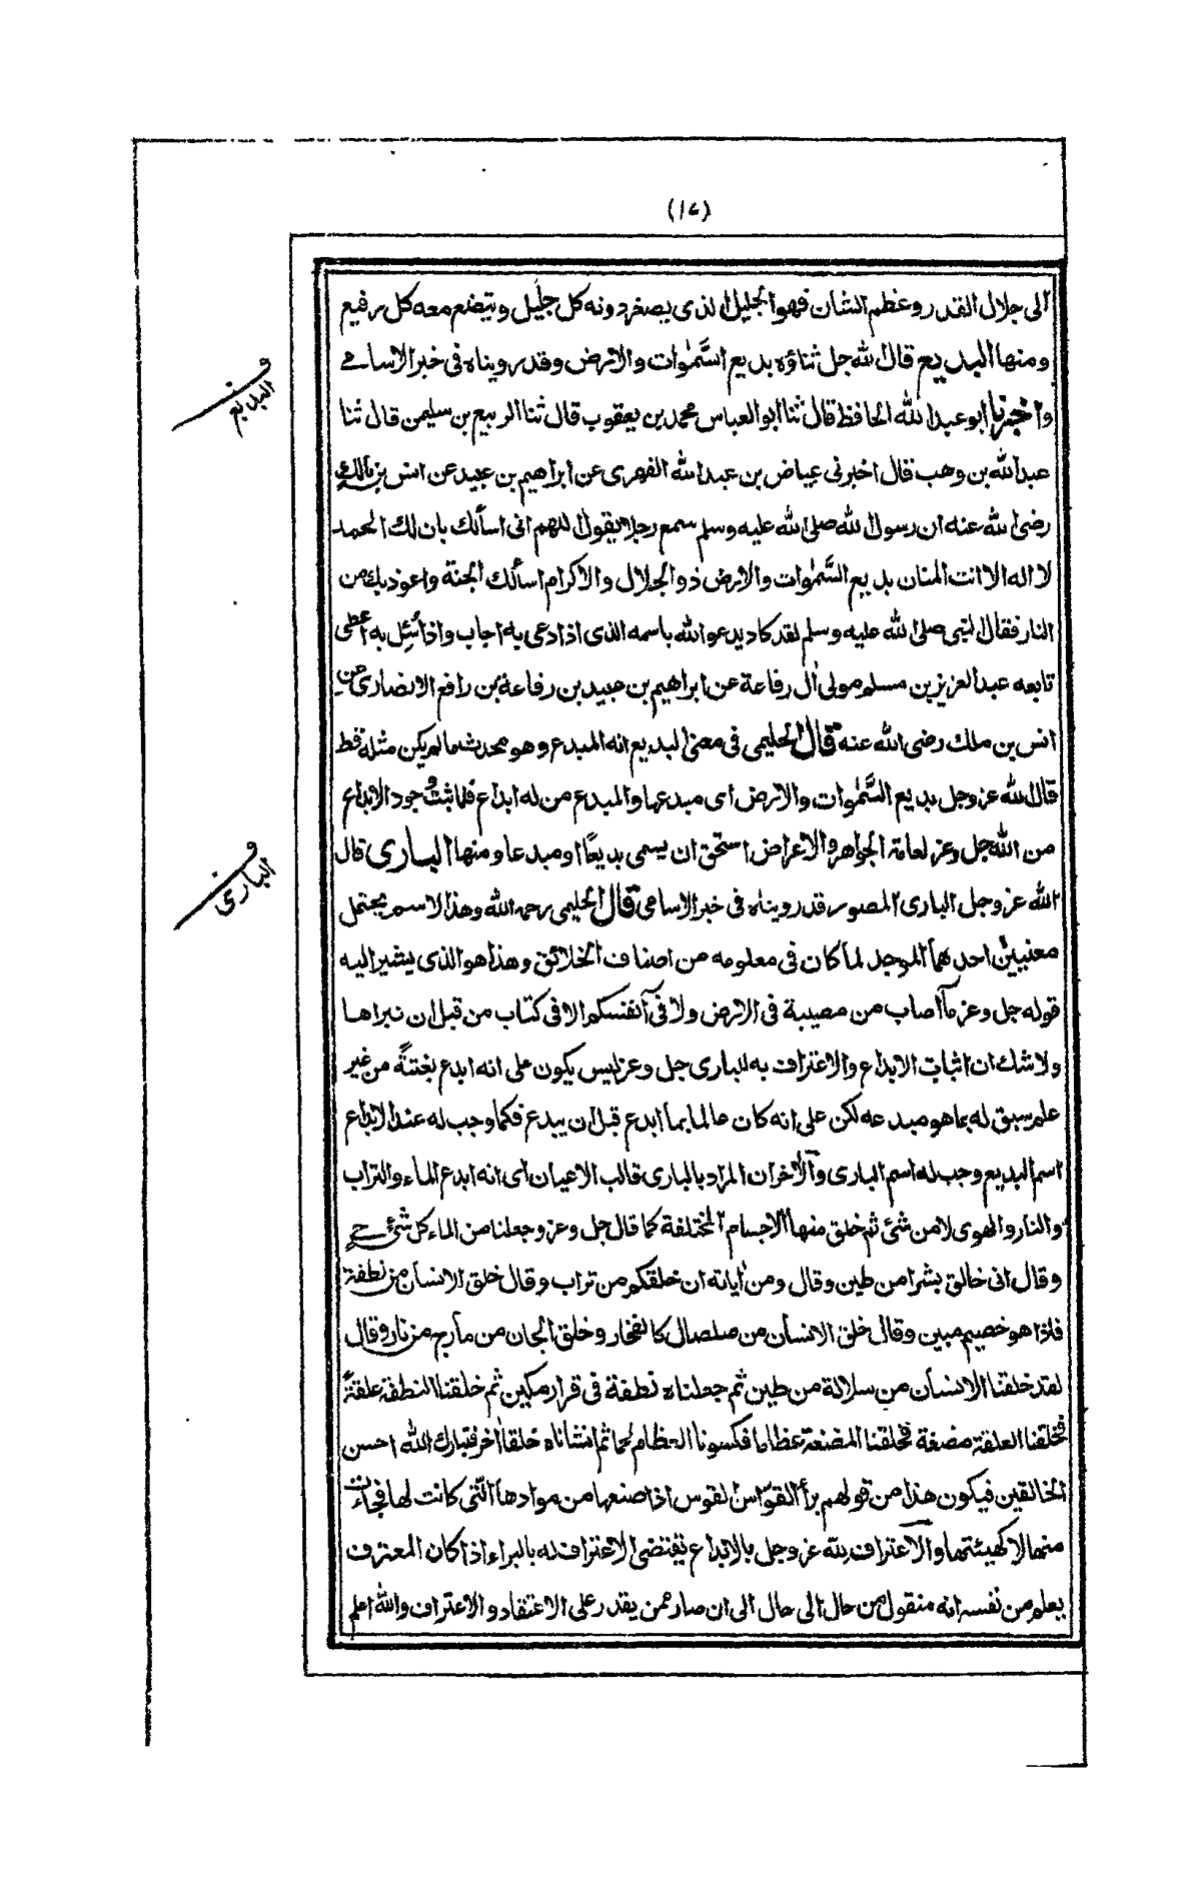 (١٧)
الى جلال القدر وعظم الشان فهو الجليل الذى يصغر دونه كل جليل ويتضع معه كل رفيع
ومنها البديع قال الله جل ثناؤه بديع السَّمٰوات والارض وقد رويناه فى خبر الاسامے
واخبرنا ابو عبدالله الحافظ قال ثنا ابو العباس محمد بن يعقوب قال ثنا الربيع بن سليمن قال ثنا
عبدالله بن وهب قال اخبرنى عياض بن عبدالله الفهرى عن ابراهيم بن عبيد عن انس بن مالك
رضى الله عنه ان رسول الله صلى الله عليه وسلم سمع رجلا يقول اللهم انى اسألك بان لك الحمد
لا اله الا انت المنان بديع السَّمٰوات والارض ذو الجلال والاكرام اسألك الجنة واعوذ بك من
النار فقال النبى صلى الله عليه وسلم لقد كاد يدعو الله باسمه الذى اذا دعى به اجاب واذا سُئِل به اعطى
تابعه عبدالعزيز بن مسلم مولى اٰل رفاعة عن ابراهيم بن عبيد بن رفاعة بن رافع الانصارى عن
انس بن ملك رضى الله عنه قال الحليمى فى معنى البديع انه المبدع وهو محدث ما لم يكن مثله قط
قال الله عز وجل بديع السَّمٰوات والارض اى مبدعها والمبدع من له ابداع فلما ثبت وجود الابداع
من الله جل وعز لعامة الجواهر والاعراض استحق ان يسمى بديعًا او مبدعا ومنها البارى قال
الله عز وجل البارى المصور قد رويناه فى خبر الاسامى قال الحليمى رحمه الله وهذا الاسم يحتمل
معنيين احدهما الموجد لما كان فى معلومه من اصناف الخلائق وهذا هو الذى يشير اليه
قوله جل وعز مآ اصاب من مصيبة فى الارض ولا فى آنفسكم الا فى كتاب من قبل ان نبراها
ولا شك ان اثبات الابداع والاعتراف به للبارى جل وعز ليس يكون على انه ابدع بغتةً من غير
علم سبق له بما هو مبدعه لكن على انه كان عالما بما ابدع قبل ان يبدع فكما وجب له عند الابداع
اسم البديع وجب له اسم البارى والآخر ان المراد بالبارى قالب الاعيان اى انه ابدع الماء والتراب
والنار والهوى لا من شئ ثم خلق منها الاجسام المختلفة كما قال جل وعز وجعلنا من الماء كل شئ حے
وقال انى خالق بشرا من طين وقال ومن اٰياته ان خلقكم من تراب وقال خلق الانسان من نطفة
فاذا هو خصيم مبين وقال خلق الانسان من صلصال كالفخار وخلق الجان من مارج من نار وقال
لقد خلقنا الانسان من سلالة من طين ثم جعلناه نطفة فى قرار مكين ثم خلقنا النطفة علقةً
فخلقنا العلقة مضغة فخلقنا المضغة عظاما فكسونا العظام لحما ثم انشاناه خلقا اٰخر فتبارك الله احسن
الخالقين فيكون هذا من قولهم برأ القوّاس القوس اذا صنعها من موادها التى كانت لها فجاءت
منها لا كهيئتها والاعتراف لله عز وجل بالابداع يقتضى الاعتراف له بالبراء اذا كان المعترف
يعلم من نفسه انه منقول من حال الى حال الى ان صار ممن يقدر على الاعتقاد والاعتراف والله اعلم
البديع
البارى